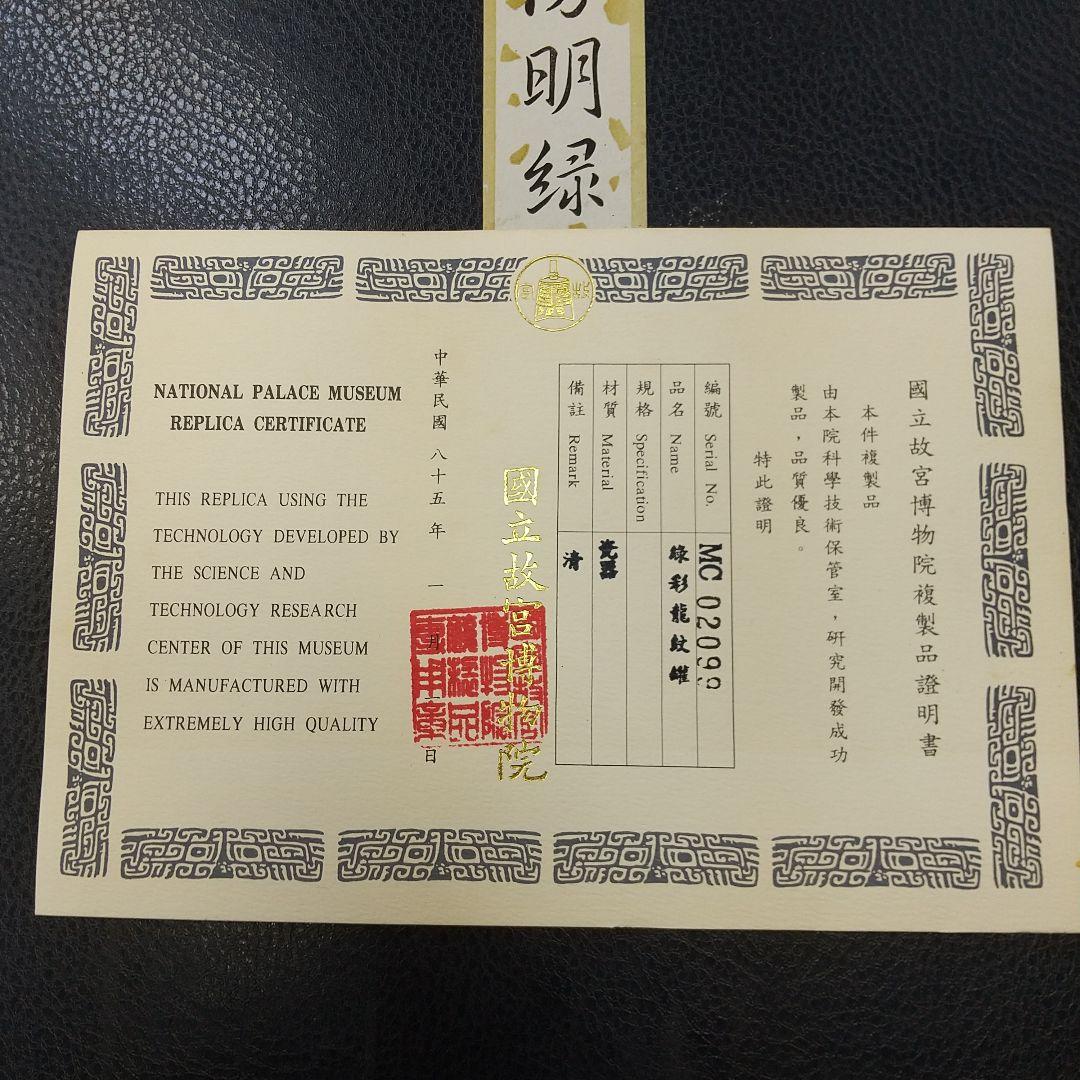 明緑
國立故宮博物院複製品證明書
本件複製品
由本院科學技術保管室，研究開發成功
製品，品質優良。
特此證明
編號 Serial No. MC 02099
品名 Name 綠彩龍紋罐
規格 Specification
材質 Material 瓷器
備註 Remark 清
國立故宮博物院
中華民國八十五年一月二日
NATIONAL PALACE MUSEUM
REPLICA CERTIFICATE
THIS REPLICA USING THE
TECHNOLOGY DEVELOPED BY
THE SCIENCE AND
TECHNOLOGY RESEARCH
CENTER OF THIS MUSEUM
IS MANUFACTURED WITH
EXTREMELY HIGH QUALITY